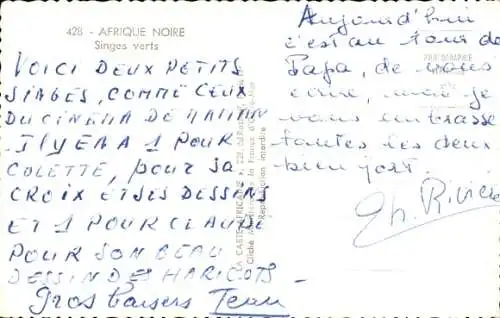 428 - AFRIQUE NOIRE
Singes verts
VOICI DEUX PETITS
SINGES, COMME CEUX
DU CINEMA DE MAMAN
IL Y EN A 1 POUR
COLETTE, pour sa
CROIX ET SES DESSINS
ET 1 POUR CLAUDE
POUR SON BEAU
DESSIN DES HARICOTS -
Gros baisers
Aujourd'hui
c'est au tour de
Papa, de vous
écrire, mais je
vous embrasse
toutes les deux
bien fort.
Reproduction interdite